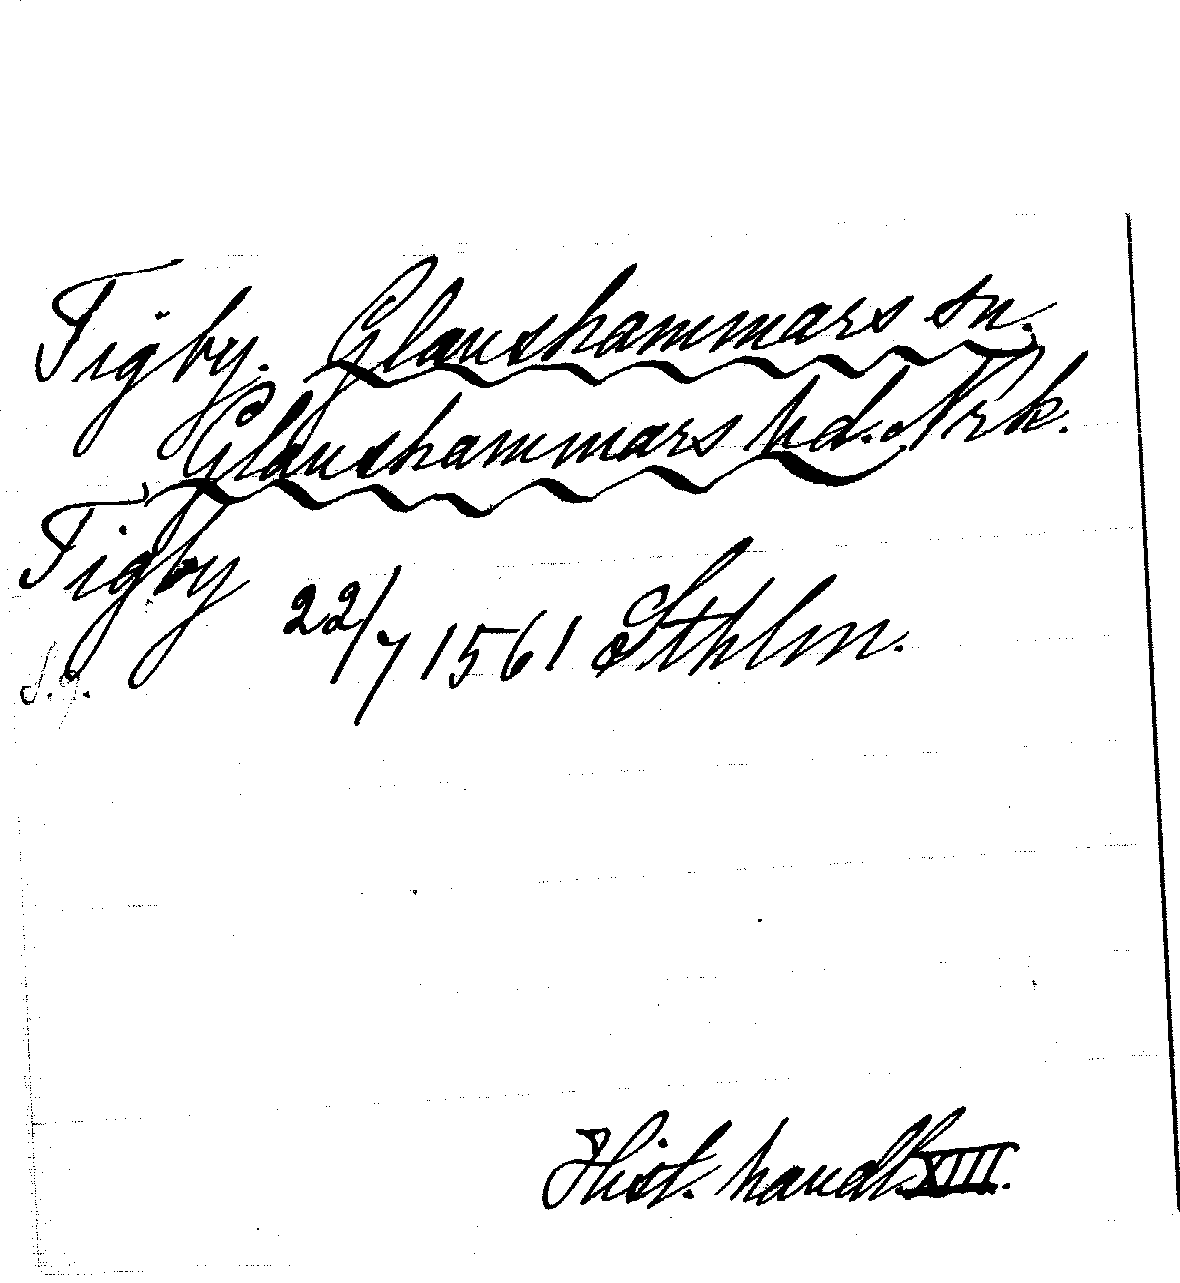 Tigby. Glanshammars sn.
Glanshammars hd. Nrk.
Tigby
22/7 1561 Sthlm.
S. 9.
Hist. handl. XIII.